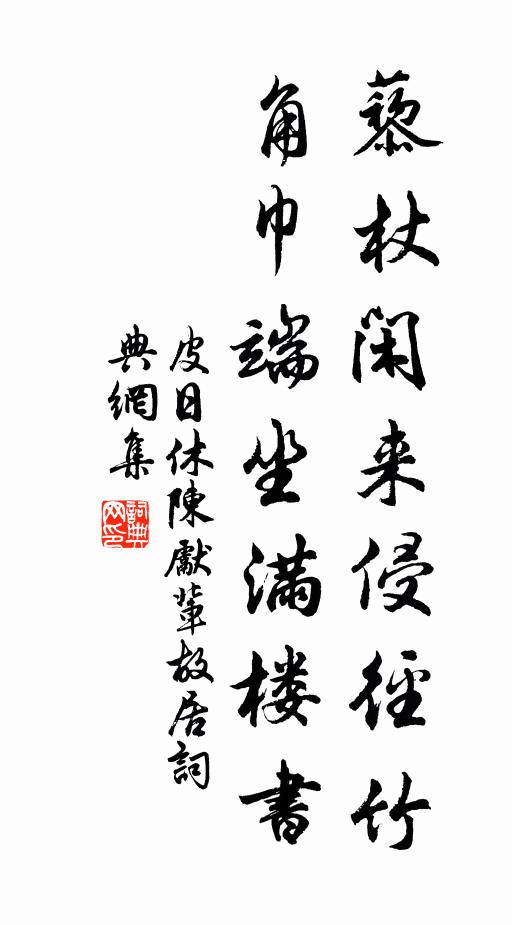 藜杖閑来侵徑竹
角巾端坐满楼書
皮日休陳獻輩故居詞
典網集
詞典
网印